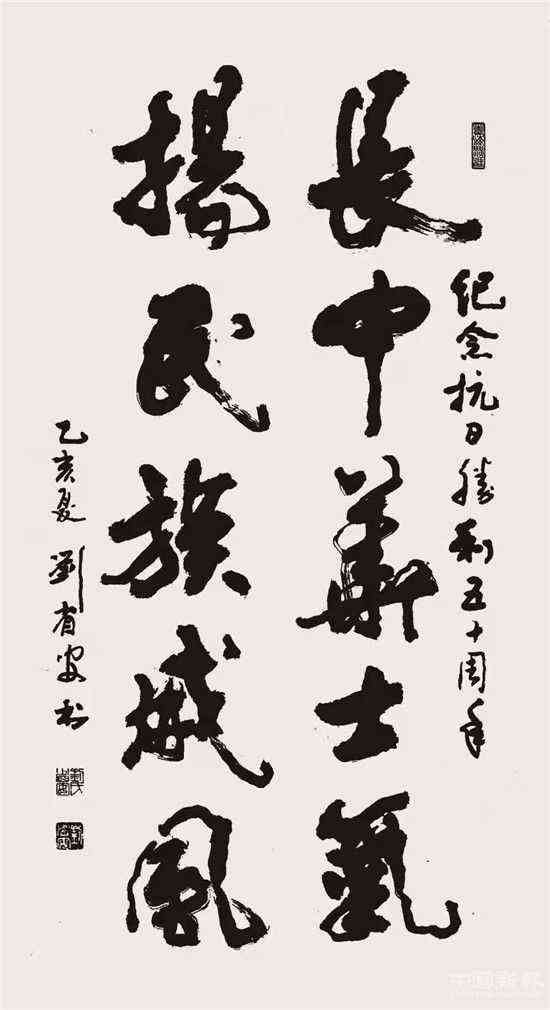 紀念抗日勝利五十周年
長中華士氣
揚民族威風
乙亥夏 劉安书
中国新報